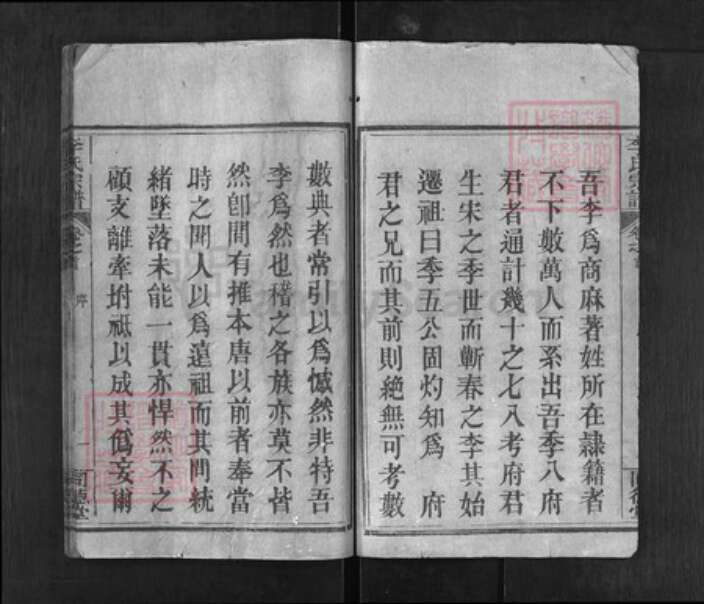 吾李爲商麻著姓所在隷籍者
不下數萬人而系出吾季八府
君者通計幾十之七八考府君
生宋之季世而蘄春之李其始
遷祖曰季五公固灼知爲 府
君之兄而其前則絶無可考數
數典者常引以爲憾然非特吾
李爲然也稽之各族亦莫不皆
然卽間有推本唐以前者奉當
時之聞人以爲遠祖而其間統
緒墜落未能一貫亦悍然不之
顧支離牽坿祗以成其僞妄爾
李氏宗譜 卷之首 序 一